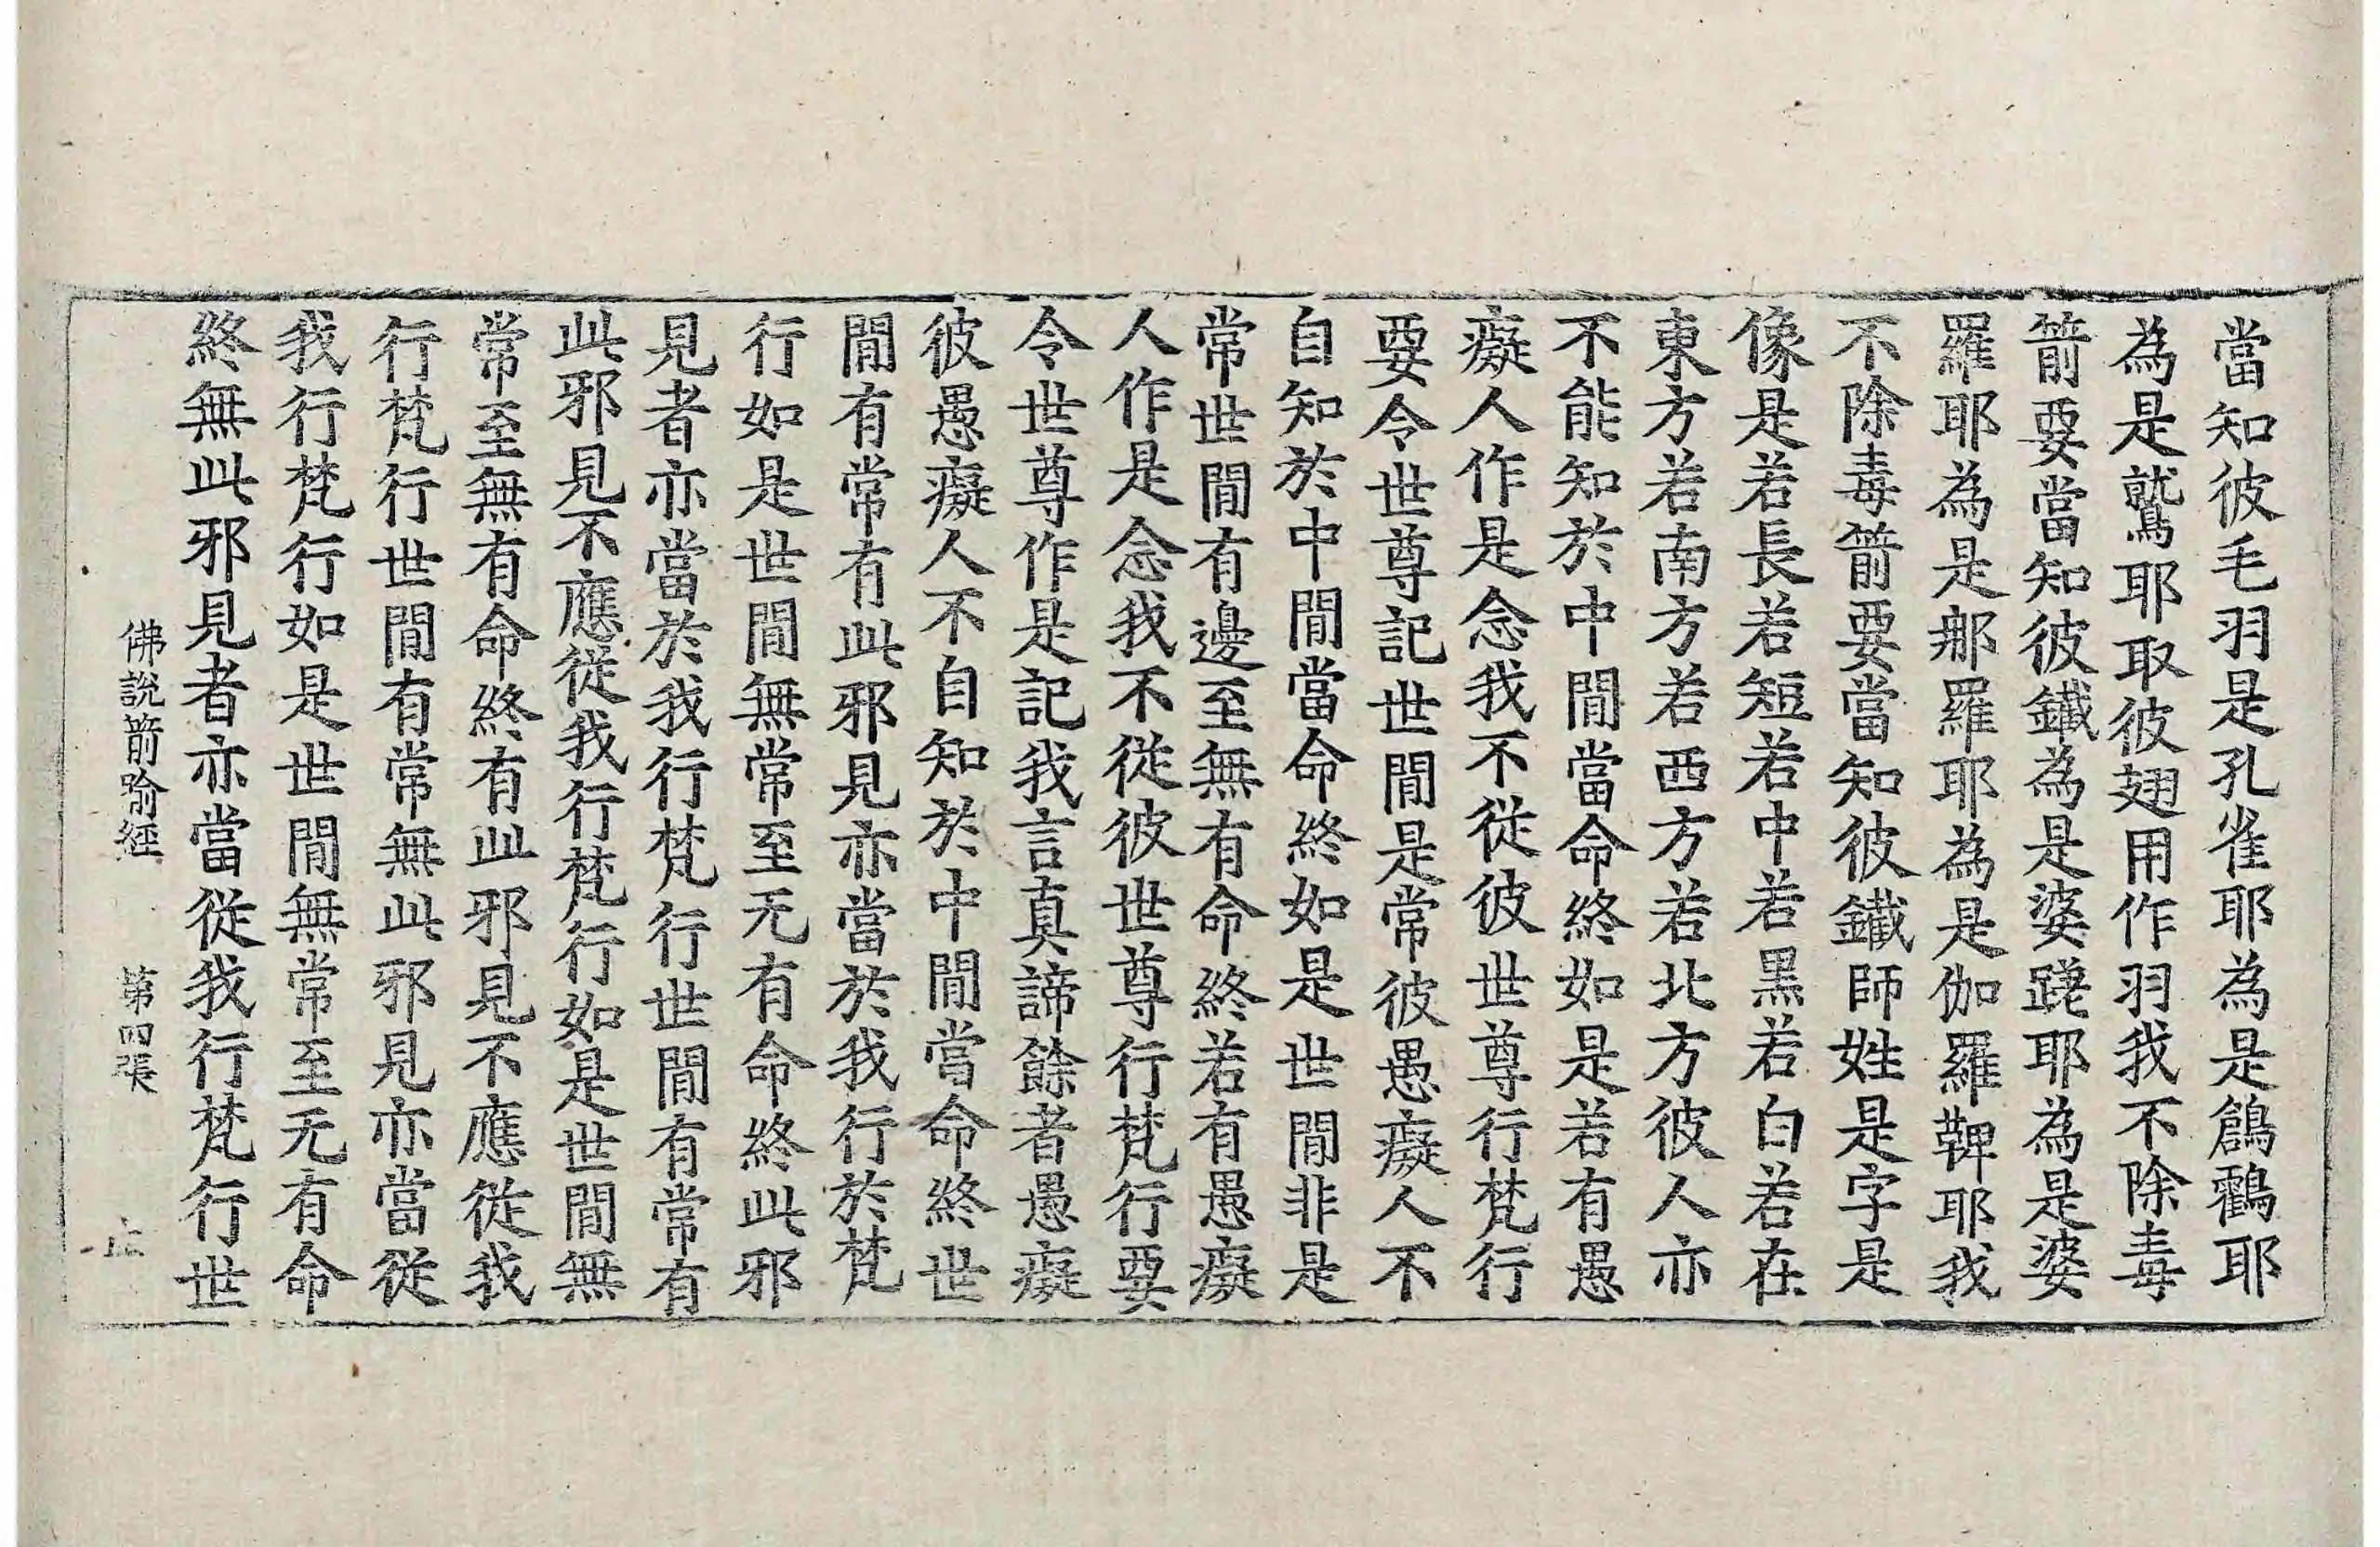 當知彼毛羽是孔雀耶為是鶬鸖耶
為是鷲耶取彼翅用作羽我不除毒
箭要當知彼鐵為是婆蹉耶為是婆
羅耶為是那羅耶為是伽羅鞞耶我
不除毒箭要當知彼鐵師姓是字是
像是若長若短若中若黑若白若在
東方若南方若西方若北方彼人亦
不能知於中間當命終如是若有愚
癡人作是念我不從彼世尊行梵行
要令世尊記世間是常彼愚癡人不
自知於中間當命終如是世間非是
常世間有邊至無有命終若有愚癡
人作是念我不從彼世尊行梵行要
令世尊作是記我言真諦餘者愚癡
彼愚癡人不自知於中間當命終世
間有常有此邪見亦當於我行於梵
行如是世間無常至无有命終此邪
見者亦當於我行梵行世間有常有
此邪見不應從我行梵行如是世間無
常至無有命終有此邪見不應從我
行梵行世間有常無此邪見亦當從
我行梵行如是世間無常至无有命
終無此邪見者亦當從我行梵行世
佛說箭喻經 第四張 止